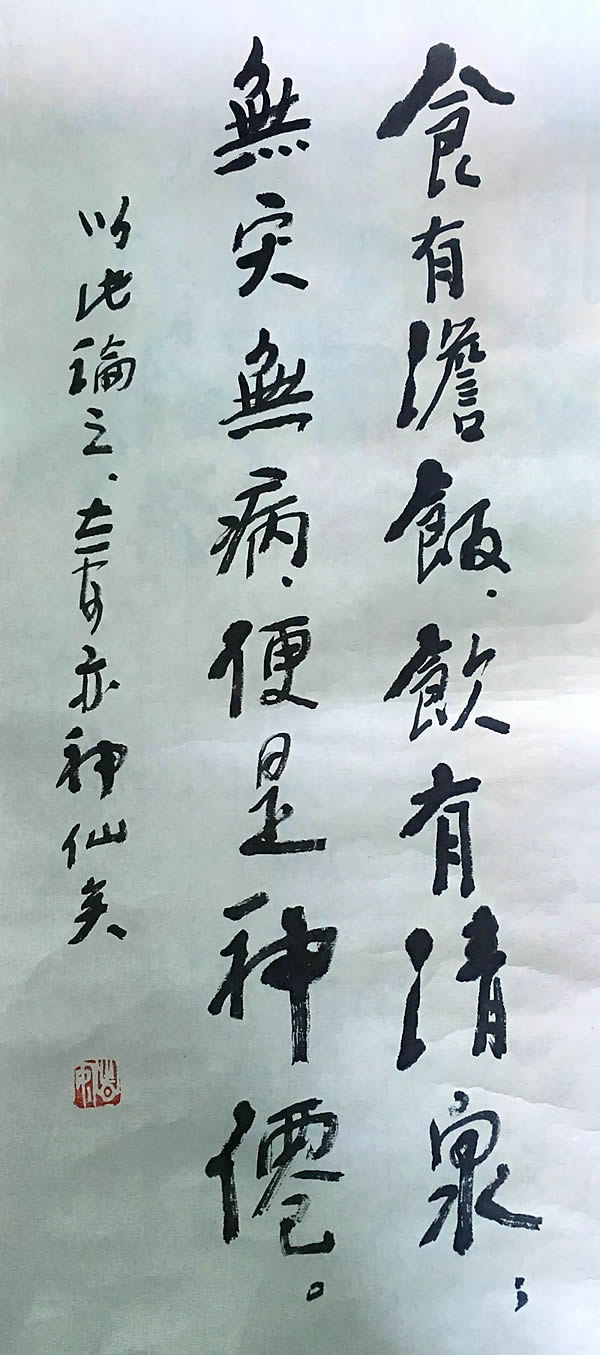 食有澹飯、飲有清泉；
無灾無病、便是神僊。
以此論之、亦神仙矣